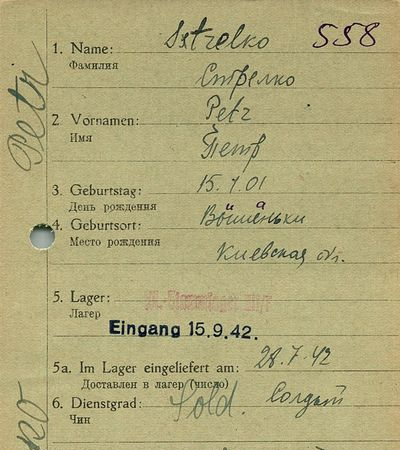 558
1. Name: Sstrelko
Фамилия
Стрелко
Petr
2. Vornamen: Petr
Имя
Петр
3. Geburtstag: 15.1.01
День рождения
4. Geburtsort:
Место рождения
Киевская обл.
5. Lager:
Лагер
Eingang 15.9.42.
5a. Im Lager eingeliefert am: 28.7.42
Доставлен в лагер (число)
6. Dienstgrad: Sold. Солдат
Чин